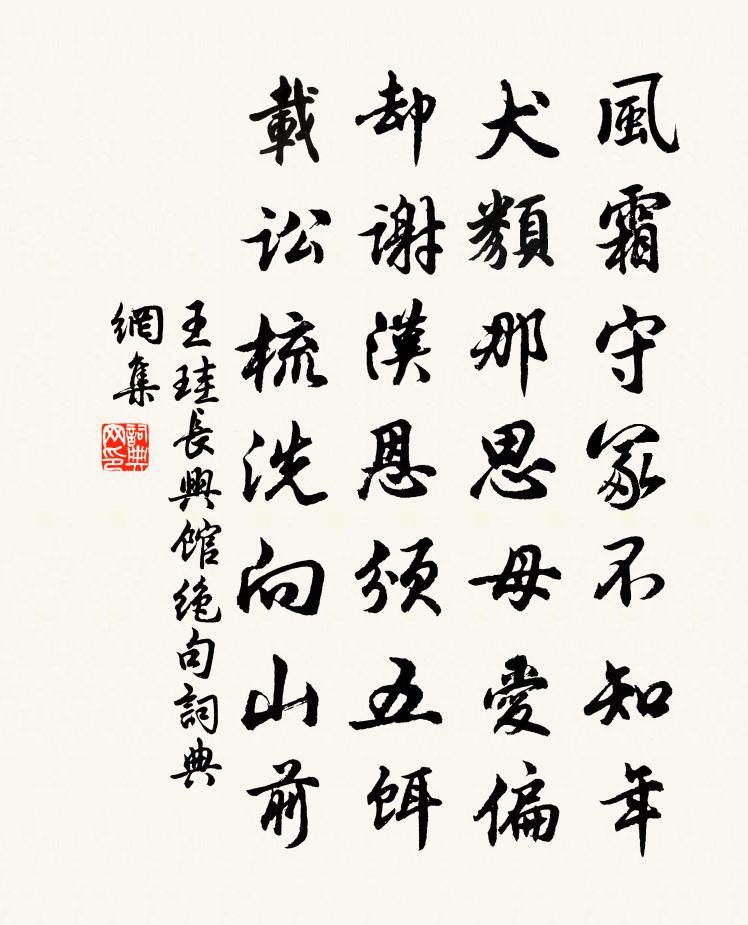 風霜守冢不知年
犬類那思母愛偏
却謝漢恩頒五餌
載訟梳洗向山前
王珪長興館絶句詞典
網集
詞典
网印